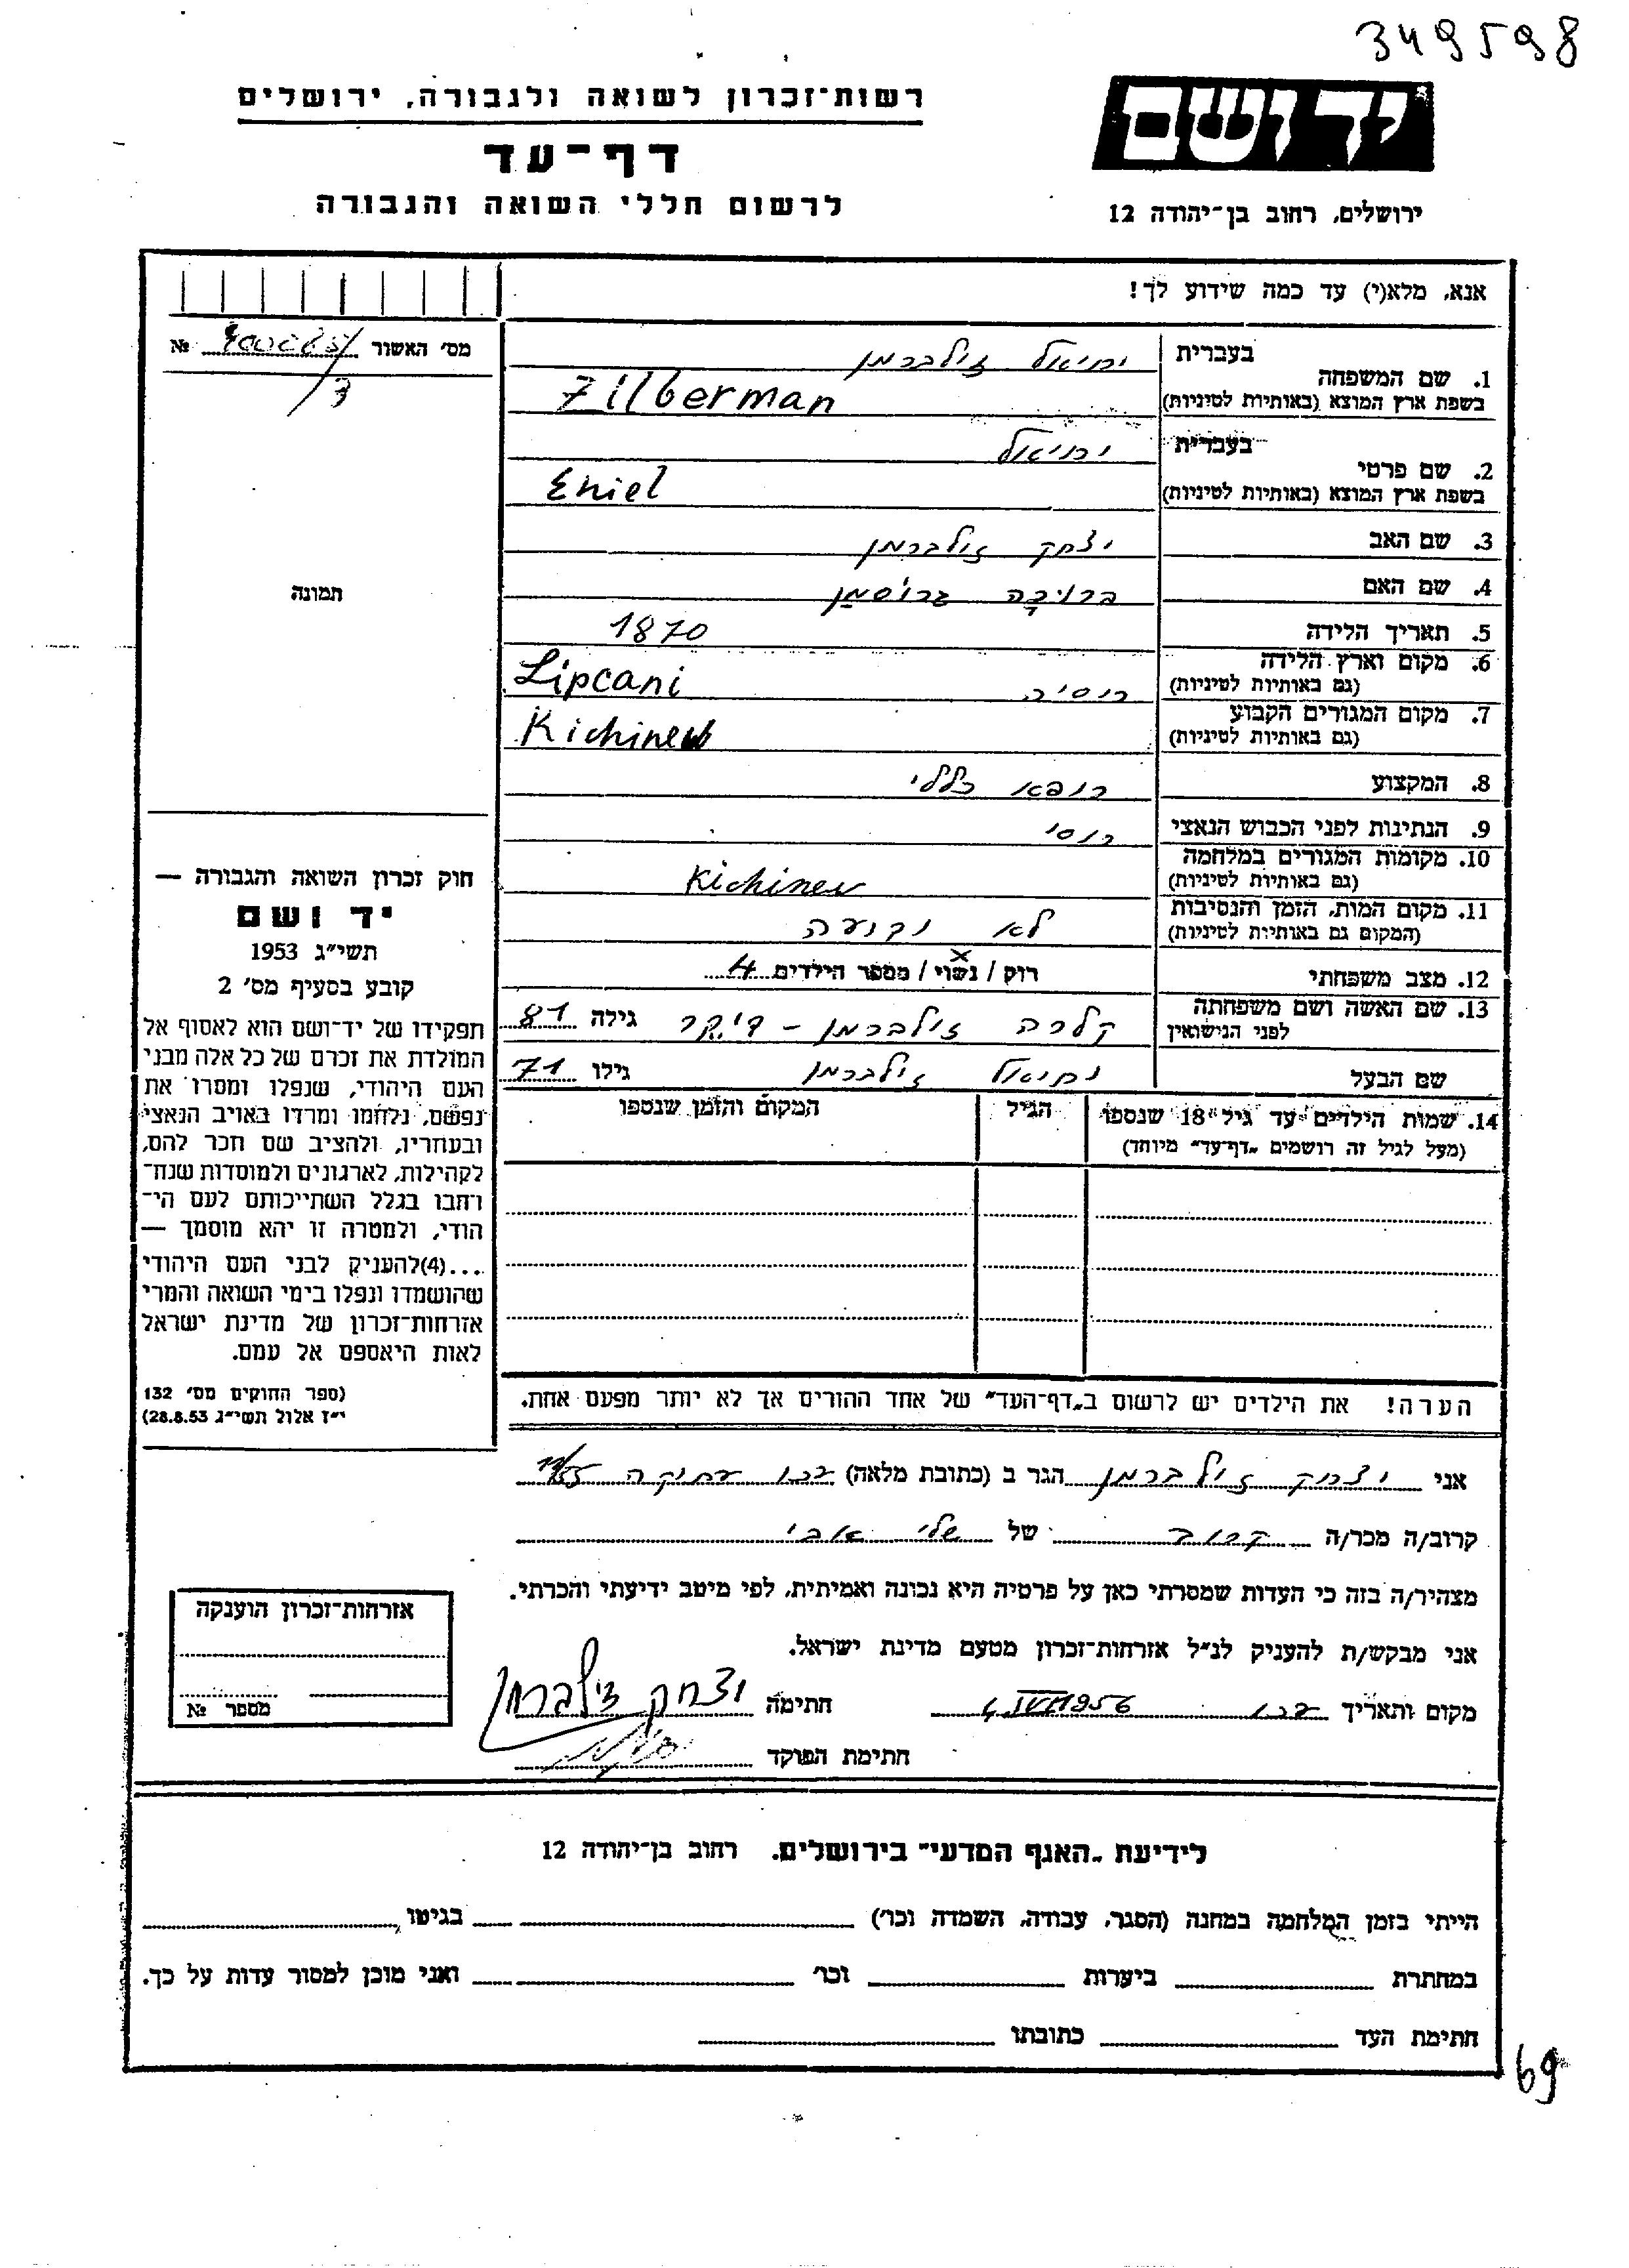 349598
רשות־זכרון לשואה ולגבורה, ירושלים
יד ושם
דף־עד
לרשום חללי השואה והגבורה
ירושלים, רחוב בן־יהודה 12
אנא, מלא(י) עד כמה שידוע לך!
מס׳ האשור №
/3
בעברית יחיאל זילברמן
1. שם המשפחה
בשפת ארץ המוצא (באותיות לטיניות) Zilberman
בעברית יחיאל
2. שם פרטי
בשפת ארץ המוצא (באותיות לטיניות) Ehiel
3. שם האב יצחק זילברמן
4. שם האם גרוסמן
5. תאריך הלידה 1870
6. מקום וארץ הלידה
(גם באותיות לטיניות) רוסיה Lipcani
7. מקום המגורים הקבוע
(גם באותיות לטיניות) Kichinew
8. המקצוע רופא כללי
9. הנתינות לפני הכבוש הנאצי רוסי
10. מקומות המגורים במלחמה
(גם באותיות לטיניות) Kichinew
11. מקום המות, הזמן והנסיבות
(המקום גם באותיות לטיניות) לא
12. מצב משפחתי רוק / נשוי / מספר הילדים 4
x
13. שם האשה ושם משפחתה
לפני הנישואין קלרה זילברמן – גילה 81
שם הבעל יחיאל זילברמן גילו 71
14. שמות הילדים עד גיל 18 שנספו הגיל המקום והזמן שנספו
(מעל לגיל זה רושמים „דף־עד״ מיוחד)
הערה! את הילדים יש לרשום ב„דף־העד״ של אחד ההורים אך לא יותר מפעם אחת.
תמונה
חוק זכרון השואה והגבורה —
יד ושם
תשי״ג 1953
קובע בסעיף מס׳ 2
תפקידו של יד־ושם הוא לאסוף אל
המולדת את זכרם של כל אלה מבני
העם היהודי, שנפלו ומסרו את
נפשם, נלחמו ומרדו באויב הנאצי
ובעוזריו, ולהציב שם וזכר להם,
לקהילות, לארגונים ולמוסדות שנח־
רבו בגלל השתייכותם לעם הי־
הודי, ולמטרה זו יהא מוסמך —
...(4) להעניק לבני העם היהודי
שהושמדו ונפלו בימי השואה והמרי
אזרחות־זכרון של מדינת ישראל
לאות היאספם אל עמם.
(ספר החוקים מס׳ 132
י״ז אלול תשי״ג 28.8.53)
אני יצחק זילברמן הגר ב (כתובת מלאה) עכו עתיקה
קרוב/ה מכר/ה קרוב של שלי אבי
מצהיר/ה בזה כי העדות שמסרתי כאן על פרטיה היא נכונה ואמיתית, לפי מיטב ידיעתי והכרתי.
אני מבקש/ת להעניק לנ״ל אזרחות־זכרון מטעם מדינת ישראל.
מקום ותאריך עכו חתימה יצחק זילברמן
חתימת הפוקד
אזרחות־זכרון הוענקה
מספר №
לידיעת „האגף המדעי״ בירושלים, רחוב בן־יהודה 12
הייתי בזמן המלחמה במחנה (הסגר, עבודה, השמדה וכו׳) בגיטו
במחתרת ביערות וכו׳ ואני מוכן למסור עדות על כך.
חתימת העד כתובתו
69